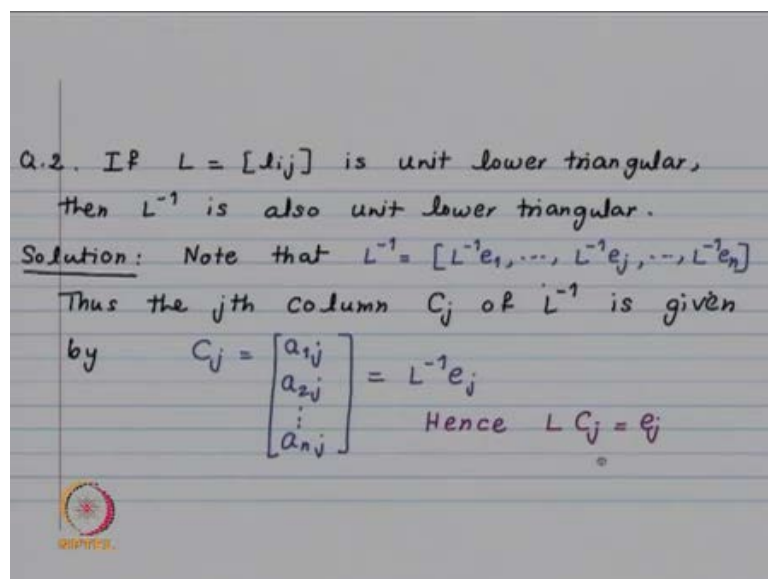 Q.2. If L = [lij] is unit lower triangular,
then L⁻¹ is also unit lower triangular.
Solution: Note that L⁻¹ = [L⁻¹e₁, ..., L⁻¹eⱼ, ..., L⁻¹eₙ]
Thus the jth column Cⱼ of L⁻¹ is given
by Cⱼ = [a₁ⱼ a₂ⱼ ⋮ aₙⱼ] = L⁻¹eⱼ
Hence L Cⱼ = eⱼ
NPTEL